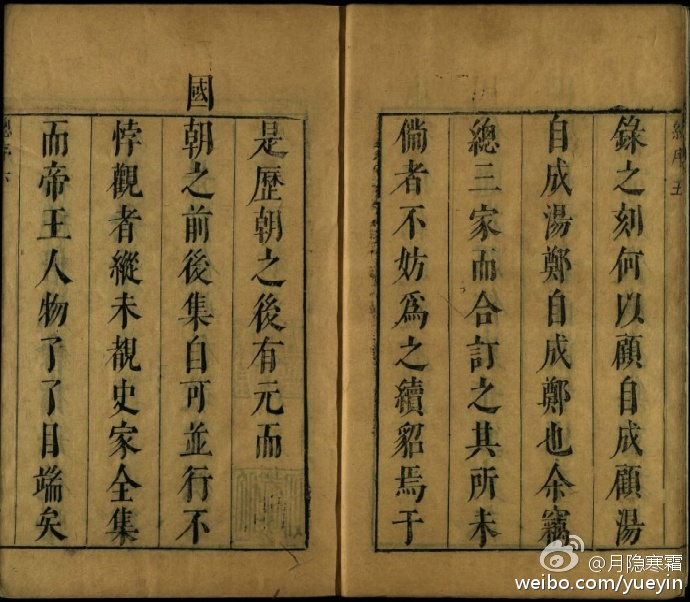 總序 五
錄之刻何以顧自成顧湯
自成湯鄭自成鄭也余竊
總三家而合訂之其所未
備者不妨爲之續貂焉于
是歷朝之後有元而
國朝之前後集自可並行不
悖觀者縱未覩史家全集
而帝王人物了了目端矣
總序 六
@月隐寒霜
weibo.com/yueyin